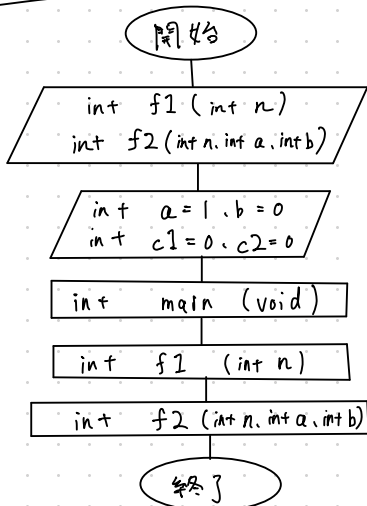 開始
int f1 (int n)
int f2 (int n、int a、int b)
int a = 1、b = 0
int c1 = 0、c2 = 0
int main (void)
int f1 (int n)
int f2 (int n、int a、int b)
終了